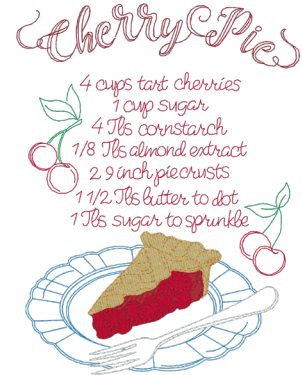 Cherry Pie
4 cups tart cherries
1 cup sugar
4 Tbs cornstarch
1/8 Tbs almond extract
2 9 inch pie crusts
1 1/2 Tbs butter to dot
1 Tbs sugar to sprinkle